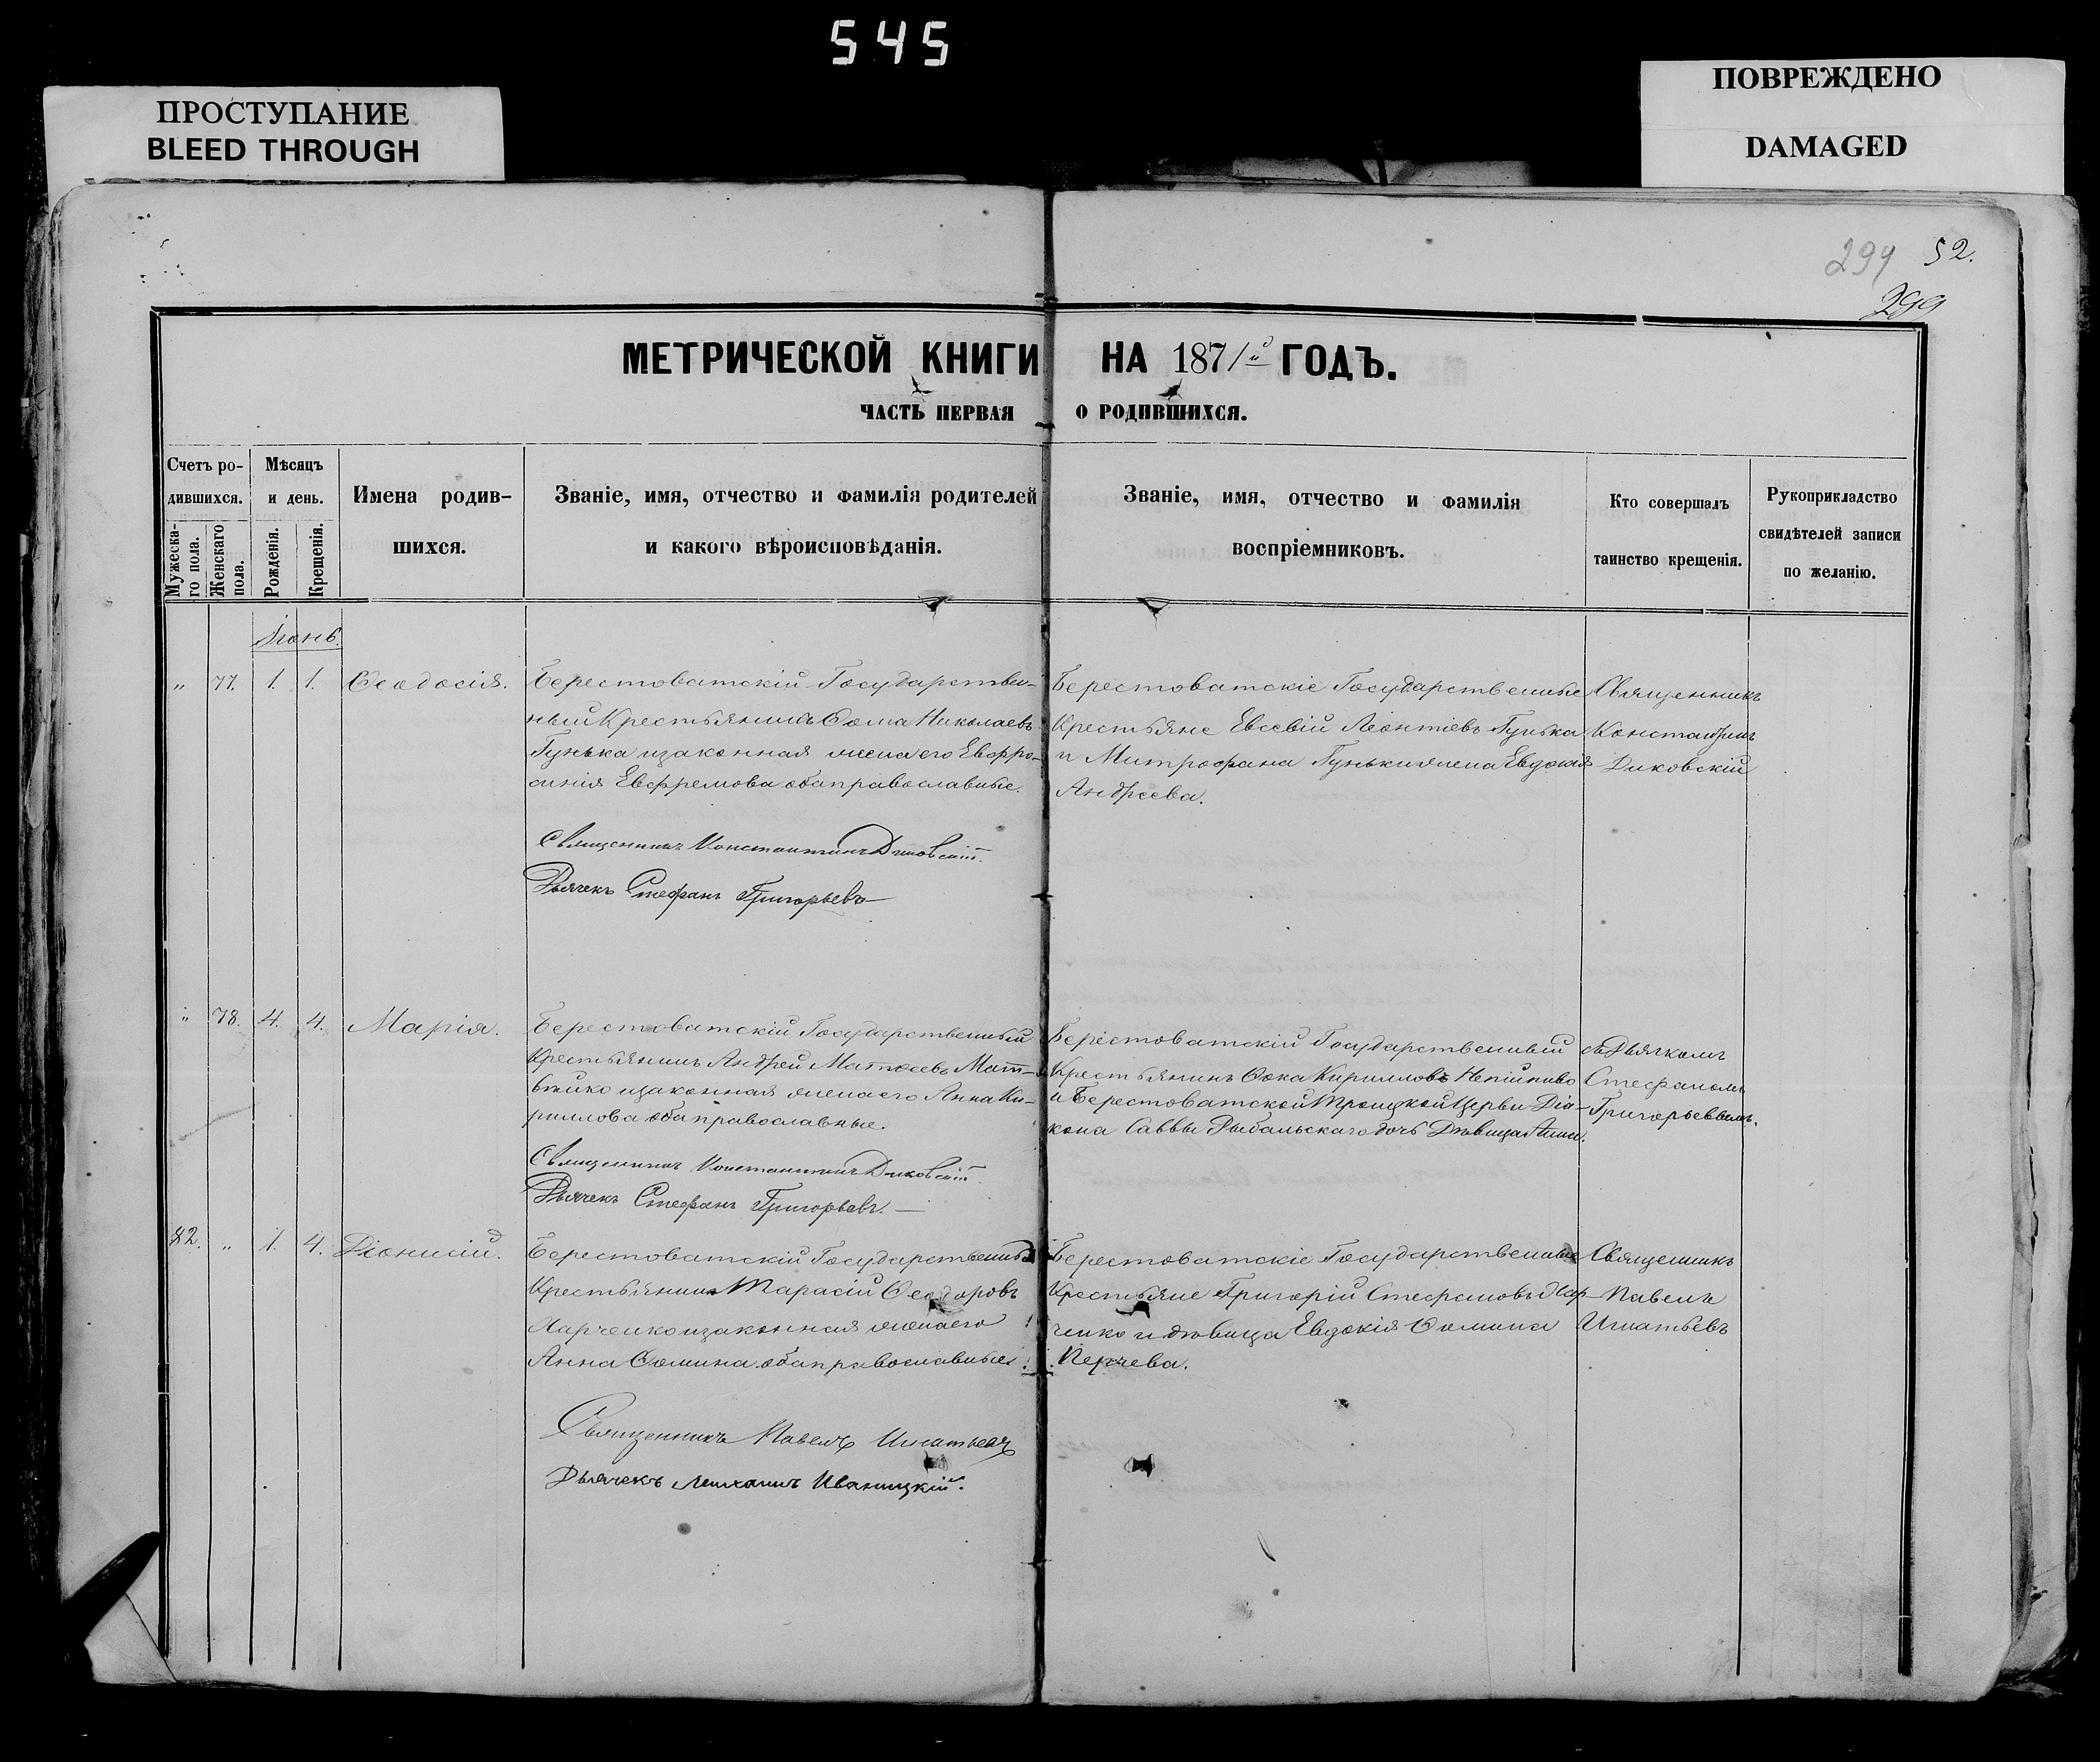 545
ПРОСТУПАНИЕ
BLEED THROUGH
ПОВРЕЖДЕНО
DAMAGED
294 52.
299
МЕТРИЧЕСКОЙ КНИГИ НА 1871/й ГОДЪ.
ЧАСТЬ ПЕРВАЯ О РОДИВШИХСЯ.
Счетъ ро-
дившихся.
Мужеска-
го пола.
Женскаго
пола.
Мѣсяцъ
и день.
Рожденія.
Крещенія.
Имена родив-
шихся.
Званіе, имя, отчество и фамилія родителей
и какого вѣроисповѣданія.
Званіе, имя, отчество и фамилія
воспріемниковъ.
Кто совершалъ
таинство крещенія.
Рукоприкладство
свидѣтелей записи
по желанію.
Іюнь.
" 77. 1. 1. Ѳеодосія.
Берестоватскій Государствен-
ный Крестьянинъ Ѳома Николаевъ
Гунька и законная жена его Евфро-
синія Евфремова оба православные.
Священникъ Константинъ Диковскій.
Дьячекъ Стефанъ Григорьевъ
Берестоватскіе Государственные
Крестьяне Евсевій Леонтіевъ Гунька
и Митрофана Гуньки жена Евдокія
Андреева.
Священникъ
Константинъ
Диковскій
" 78. 4. 4. Марія.
Берестоватскій Государственный
Крестьянинъ Андрей Матѳеевъ Мат-
вѣйко и законная жена его Анна Ки-
риллова оба православные.
Священникъ Константинъ Диковскій.
Дьячекъ Стефанъ Григорьевъ.
Берестоватскій Государственный
Крестьянинъ Ѳока Кирилловъ Непійпиво
и Берестоватской Троицкой Церкви Діа-
кона Саввы Рыбальскаго дочь Дѣвица Анна.
съ Дьячкомъ
Стефаномъ
Григорьевымъ.
82. " 1. 4. Діонисій.
Берестоватскій Государственный
Крестьянинъ Тарасій Ѳеодоровъ
Харченко и законная жена его
Анна Ѳомина оба православные.
Священникъ Павелъ Игнатьевъ
Дьячекъ Михаилъ Иваницкій.
Берестоватскіе Государственные
Крестьяне Григорій Стефановъ Хар-
ченко и дѣвица Евдокія Ѳомина
Священникъ
Павелъ
Игнатьевъ